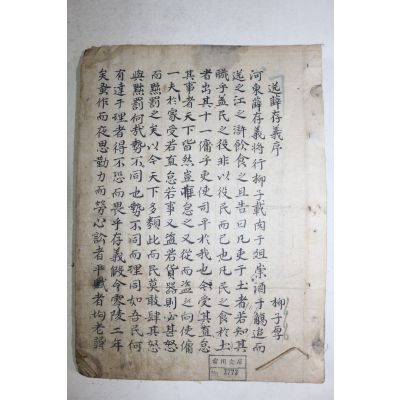 送薛存義序
柳子厚
河東薛存義將行柳子載肉于俎崇酒于觴追而
送之江之滸飲食之且告曰凡吏于土者若知其
職乎盖民之役非以役民而已也凡民之食於土
者出其十一傭乎吏使司平於我也今受其直怠
其事者天下皆然豈惟怠之又從而盗之向使傭
一夫於家受若直怠若事又盗若貨器則必甚怒
而黜罰之矣以今天下多類此而民莫敢肆其怒
與黜罰何哉勢不同也勢不同而理同如吾民何
有達于理者得不恐而畏乎存義假令零陵二年
矣蚤作而夜思勤力而勞心訟者平賦者均老